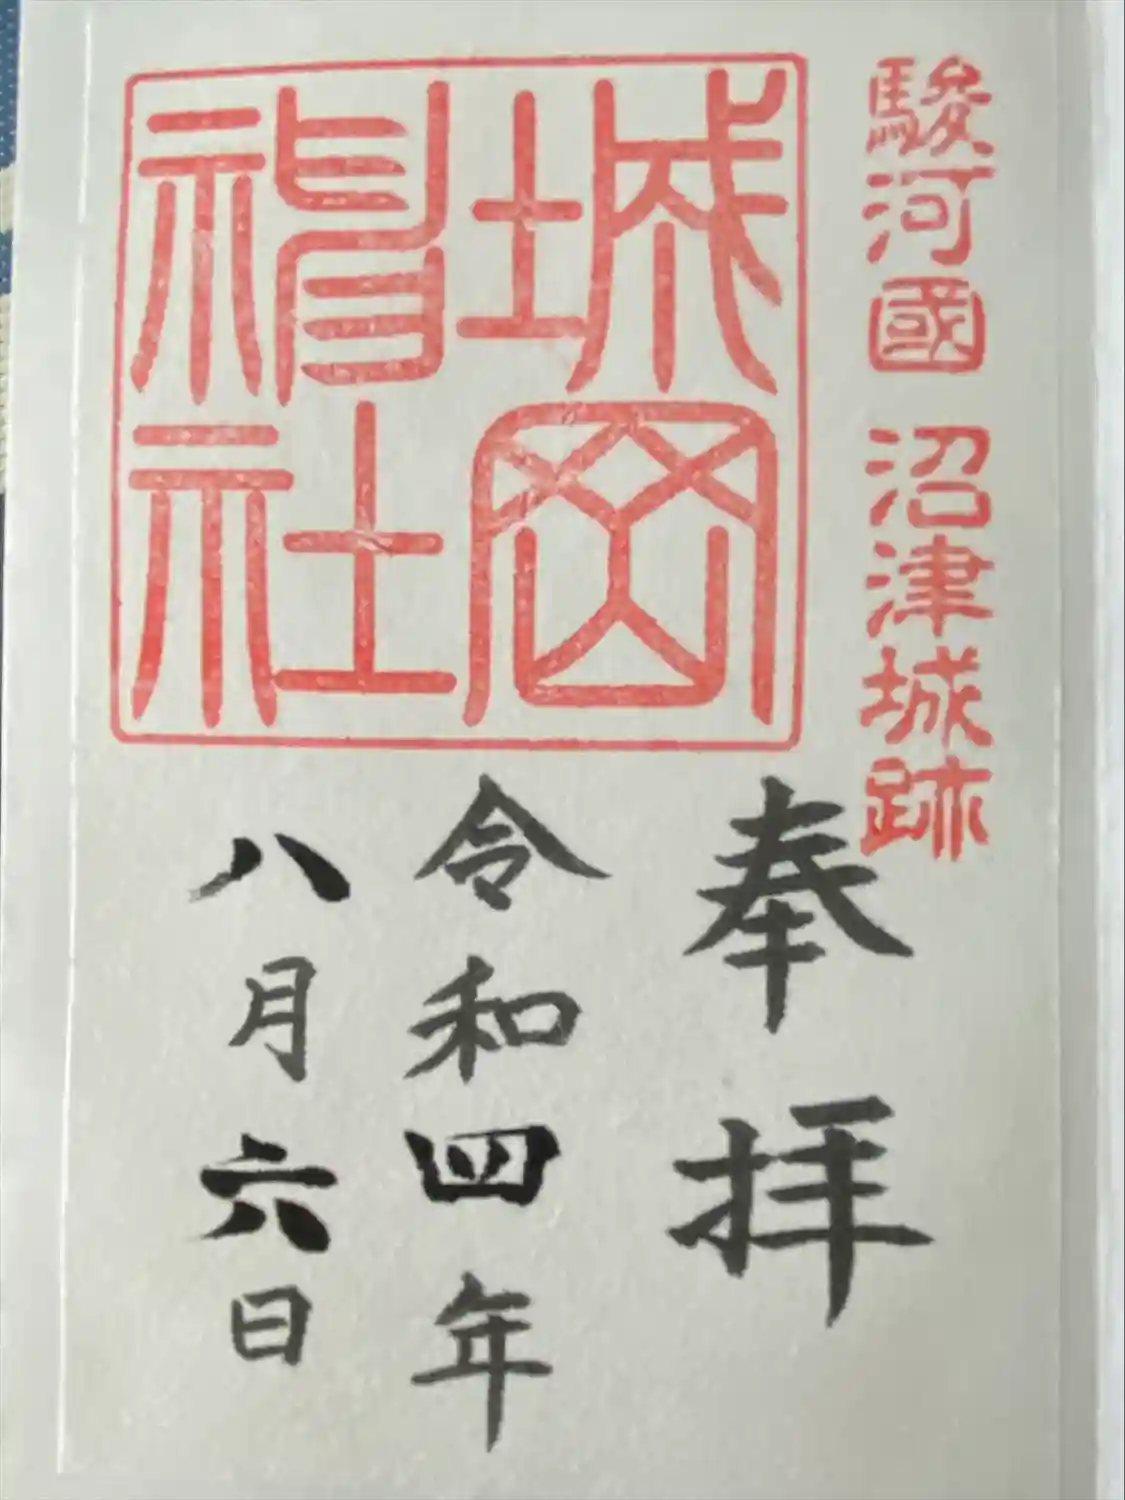 駿河國 沼津城跡
城岡
神社
奉拝
令和四年
八月六日